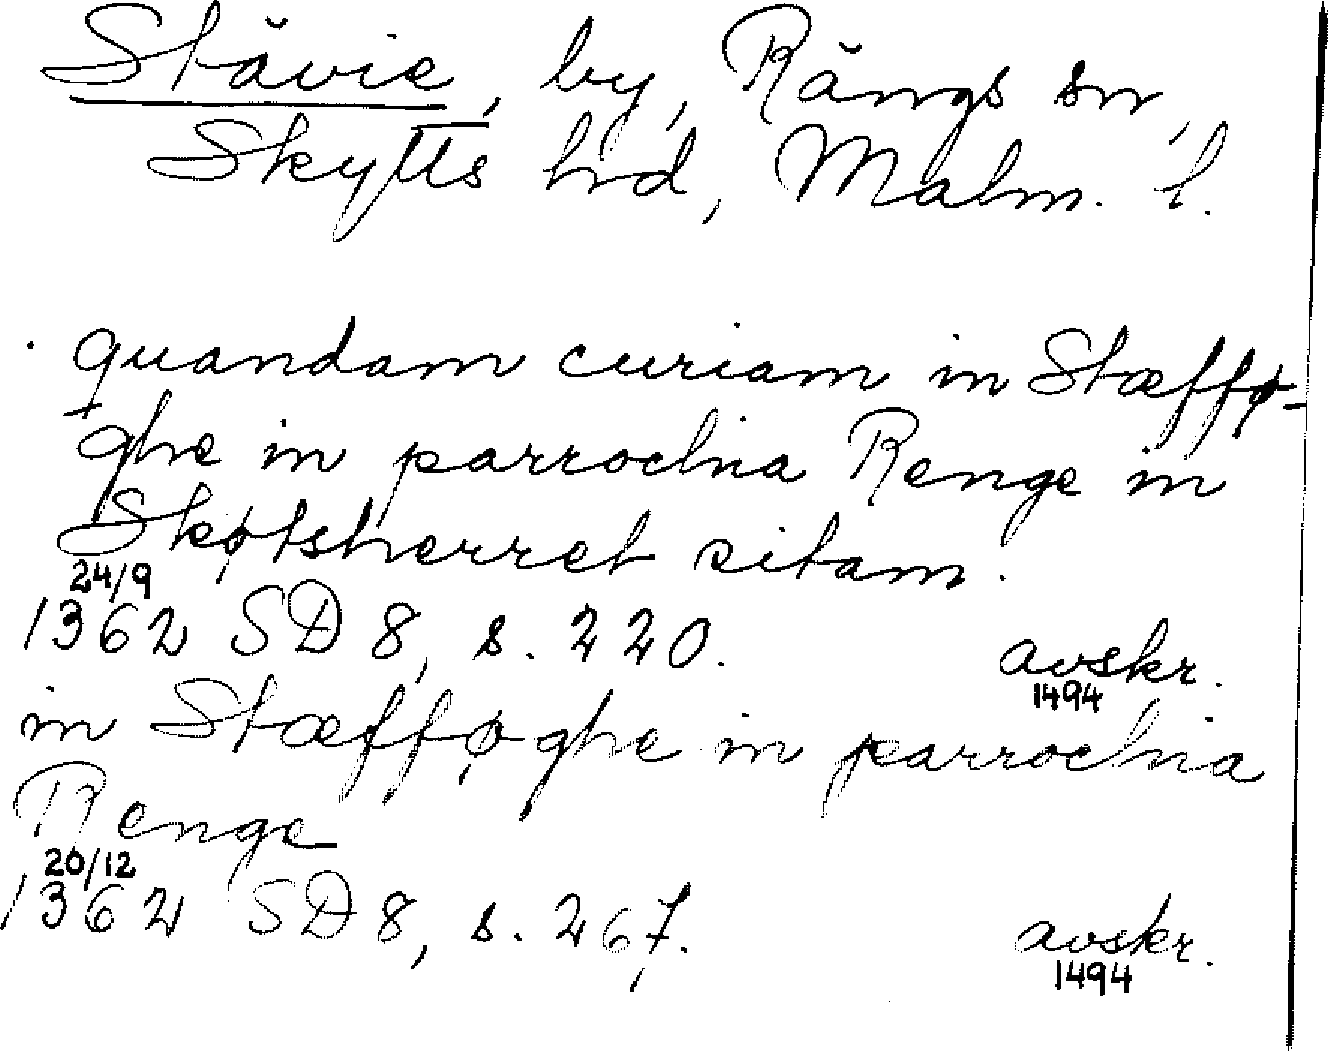 Stävie, by, Rängs sn,
Skytts hrd, Malm. l.
quandam curiam in Stæffø-
ghe in parrochia Renge in
Skøtsherret sitam.
24/9
1362 SD 8, s. 220. avskr.
1494
in Stæfføghe in parrochia
Renge
20/12
1362 SD 8, s. 267. avskr.
1494